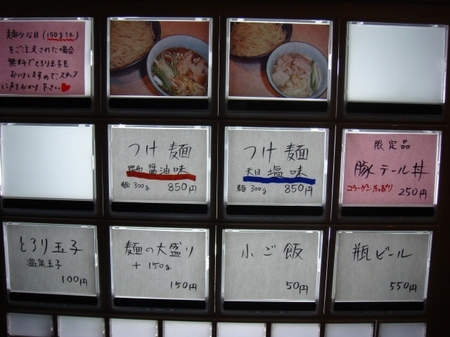 麺少な目(150g)(1人)
をご注文された場合
無料でとろり玉子を
お付けしますのでスタッフ
に声をおかけ下さい♥
つけ麺
醤油味
麺300g 850円
つけ麺
塩味
麺300g 850円
限定品
豚テール丼
コラーゲンたっぷり 250円
とろり玉子
温泉玉子
100円
麺の大盛り
+150g
150円
小ご飯
50円
瓶ビール
550円